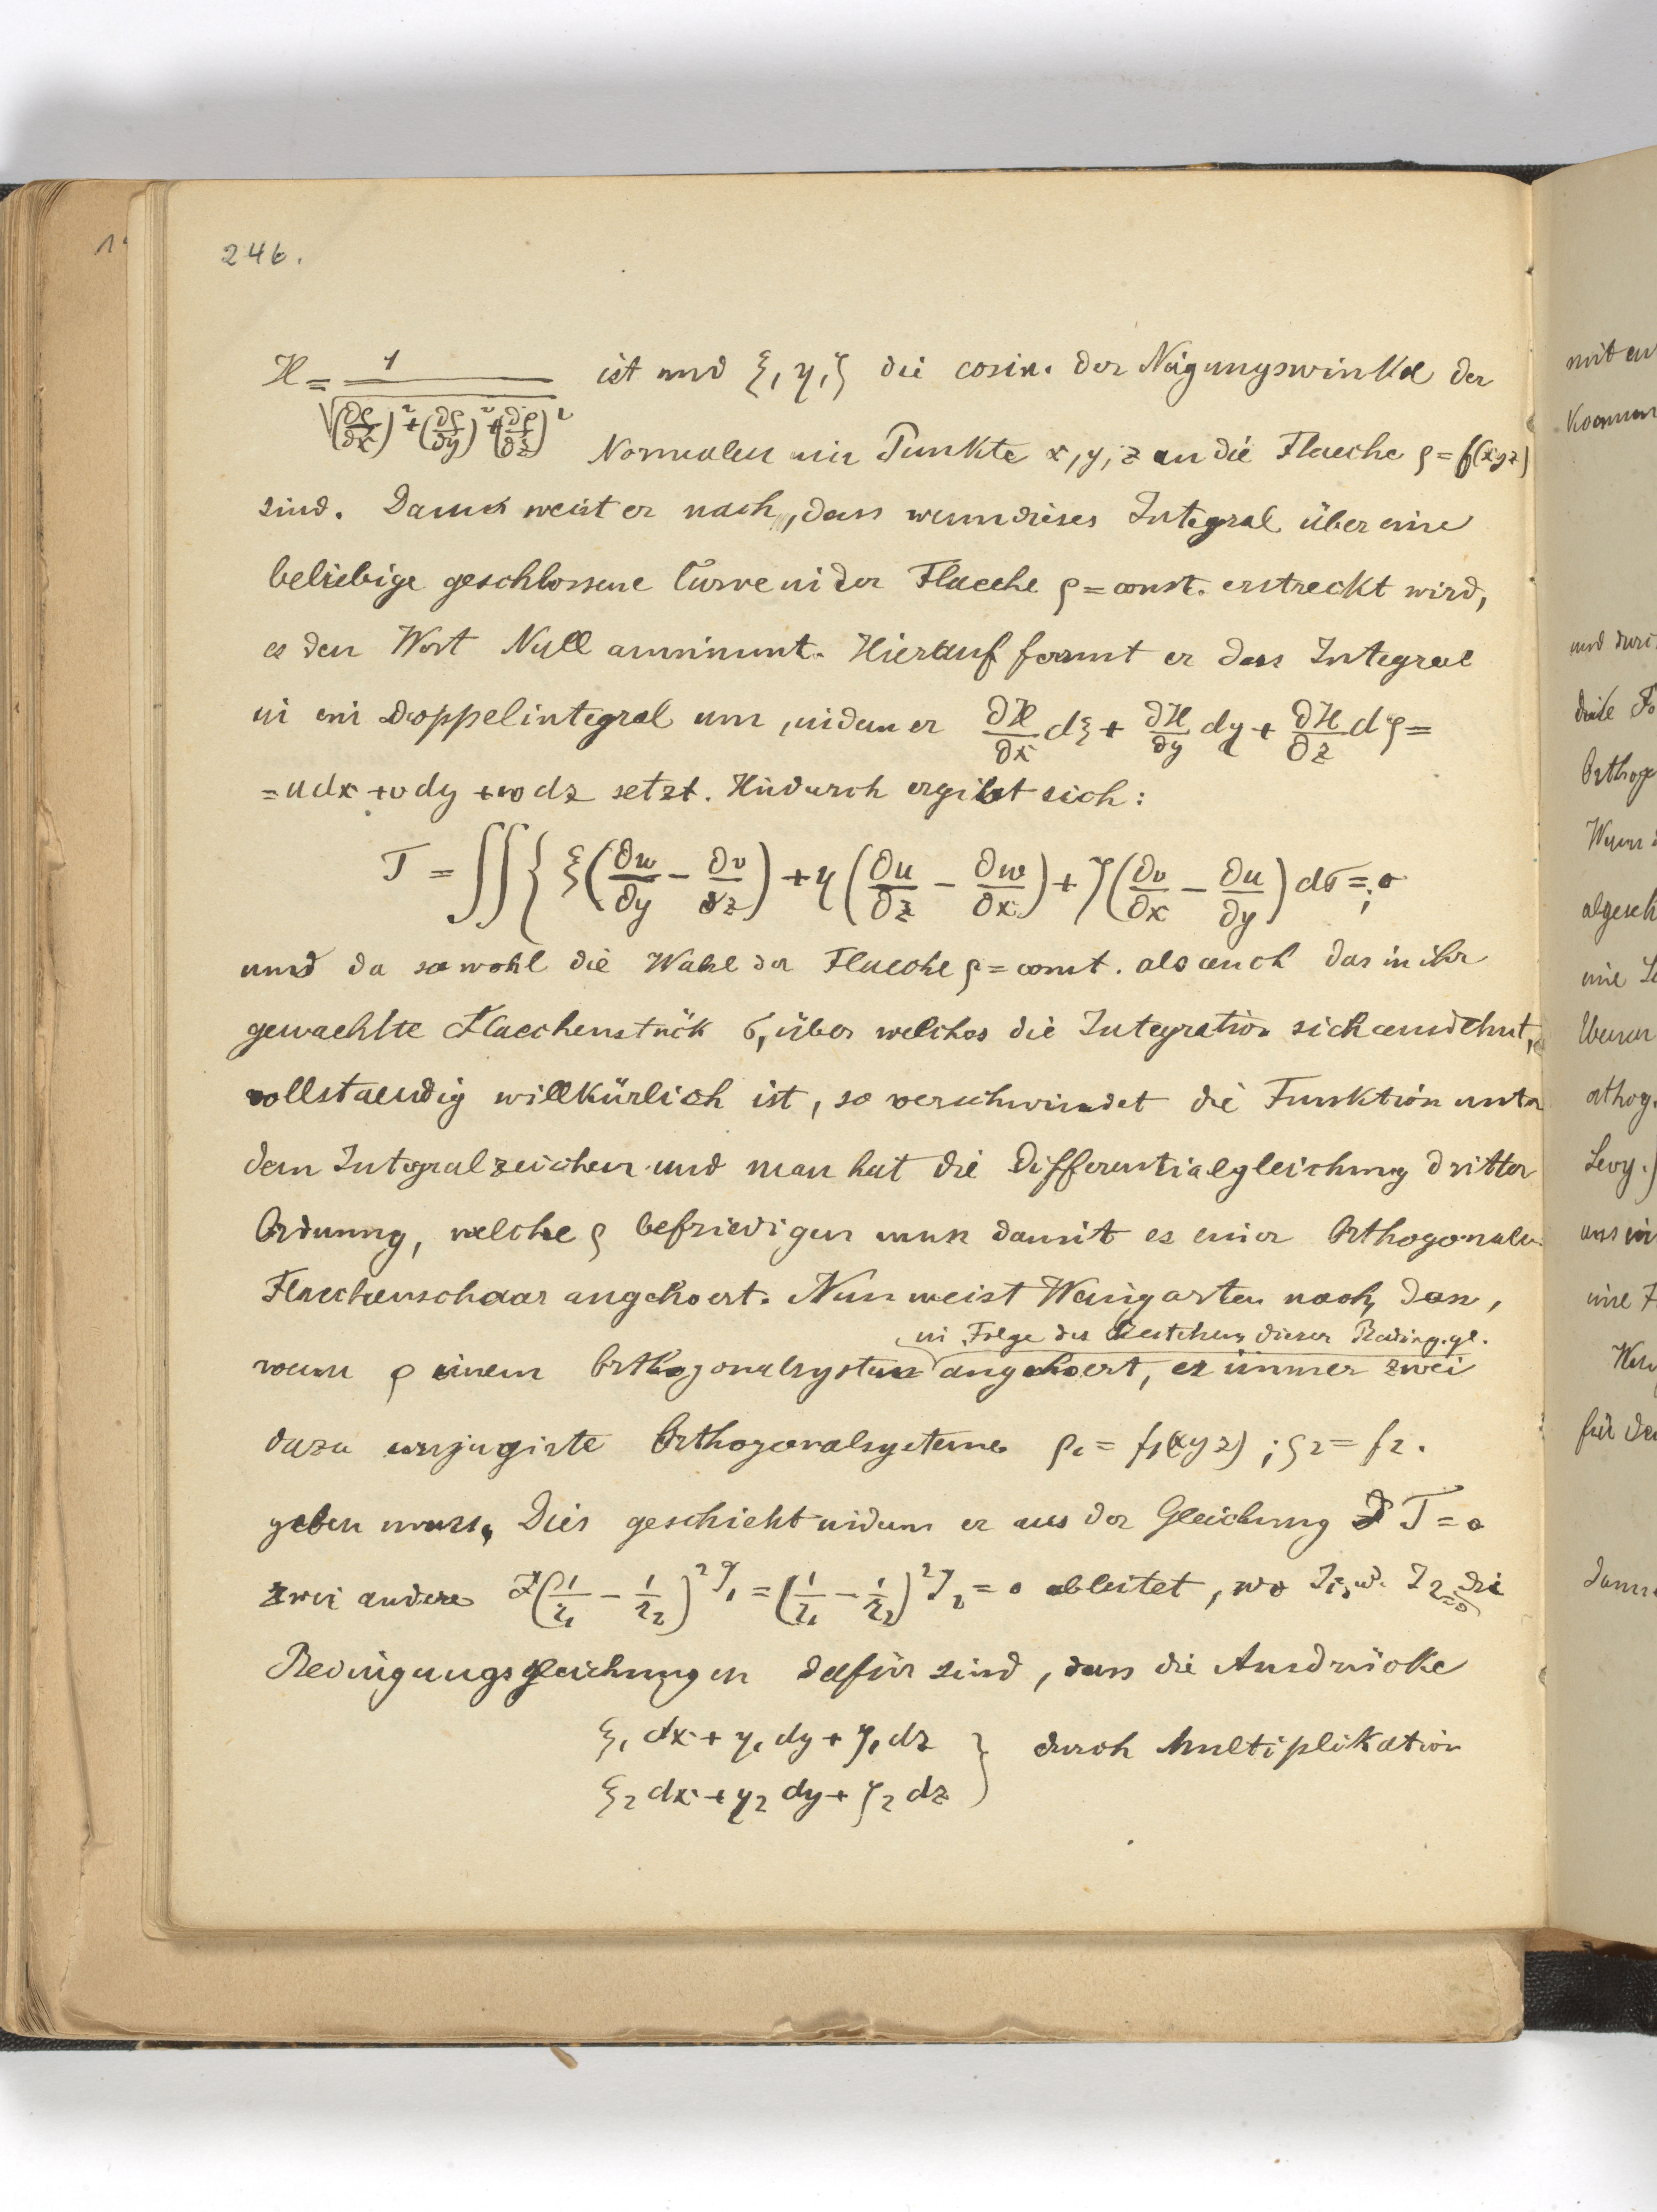 246.
H = 1 / √((∂ρ/∂x)² + (∂ρ/∂y)² + (∂ρ/∂z)²) ist und ξ, η, ζ die cosin. der Neigungswinkel der
Normalen im Punkte x, y, z an die Flaeche ρ = f(xyz)
sind. Danach weist er nach, dass wenn dieses Integral über eine
beliebige geschlossene Curve in der Flaeche ρ = const. erstreckt wird,
es den Wert Null annimmt. Hierauf formt er das Integral
in ein Doppelintegral um, indem er ∂H/∂x dξ + ∂H/∂y dη + ∂H/∂z dζ =
= u dx + v dy + w dz setzt. Hiedurch ergibt sich:
J = ∬ { ξ(∂w/∂y − ∂v/∂z) + η(∂u/∂z − ∂w/∂x) + ζ(∂v/∂x − ∂u/∂y) dσ = 0;
und da sowohl die Wahl der Flaeche ρ = const. als auch das in ihr
gewaehlte Flaechenstück σ, über welches die Integration sich ausdehnt,
vollstaendig willkürlich ist, so verschwindet die Funktion unter
dem Integralzeichen und man hat die Differentialgleichung dritter
Ordnung, welche ρ befriedigen muss damit es einer Orthogonalen
Flaechenschaar angehoert. Nun weist Weingarten nach, dass,
in Folge des Bestehens dieser Beding.gl.
wenn ρ einem Orthogonalsystem angehoert, es immer zwei
dazu conjugirte Orthogonalsysteme ρ₁ = f₁(xyz) ; ρ₂ = f₂.
geben muss. Dies geschieht indem er aus der Gleichung J = 0
zwei andere (1/r₁ − 1/r₂)² J₁ = (1/r₁ − 1/r₂)² J₂ = 0 ableitet, wo J₁ u. J₂ = 0 die
Bedingungsgleichungen dafür sind, dass die Ausdrücke
ξ₁ dx + η₁ dy + ζ₁ dz } durch Multiplikation
ξ₂ dx + η₂ dy + ζ₂ dz
mit
und
Orthog
Levy.)
für